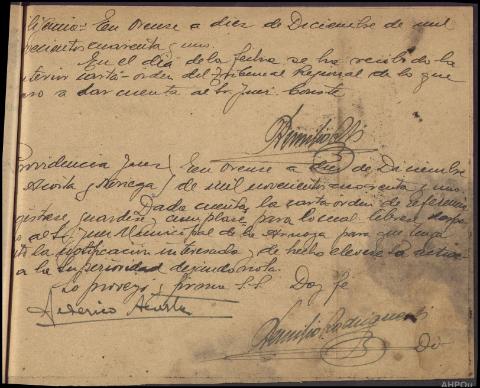 En Orense a diez de Diciembre de mil
novecientos cuarenta y uno.
En el día de la fecha se ha recibido la
anterior carta-orden del Tribunal Regional de lo que
paso a dar cuenta al Sr. Juez. Conste
Providencia Juez } En Orense a diez de Diciembre
Acosta y Noriega } de mil novecientos cuarenta y uno.
Dada cuenta, la carta orden de referencia
guardese y cumplase, para lo cual librese
al Sr. Juez Municipal de la Arnoya para que tenga
la notificación interesada, y de hecho elevese lo
a la Superioridad dejando nota.
Lo proveyó y firma S.S. Doy fé
Federico Acosta
AHPOu